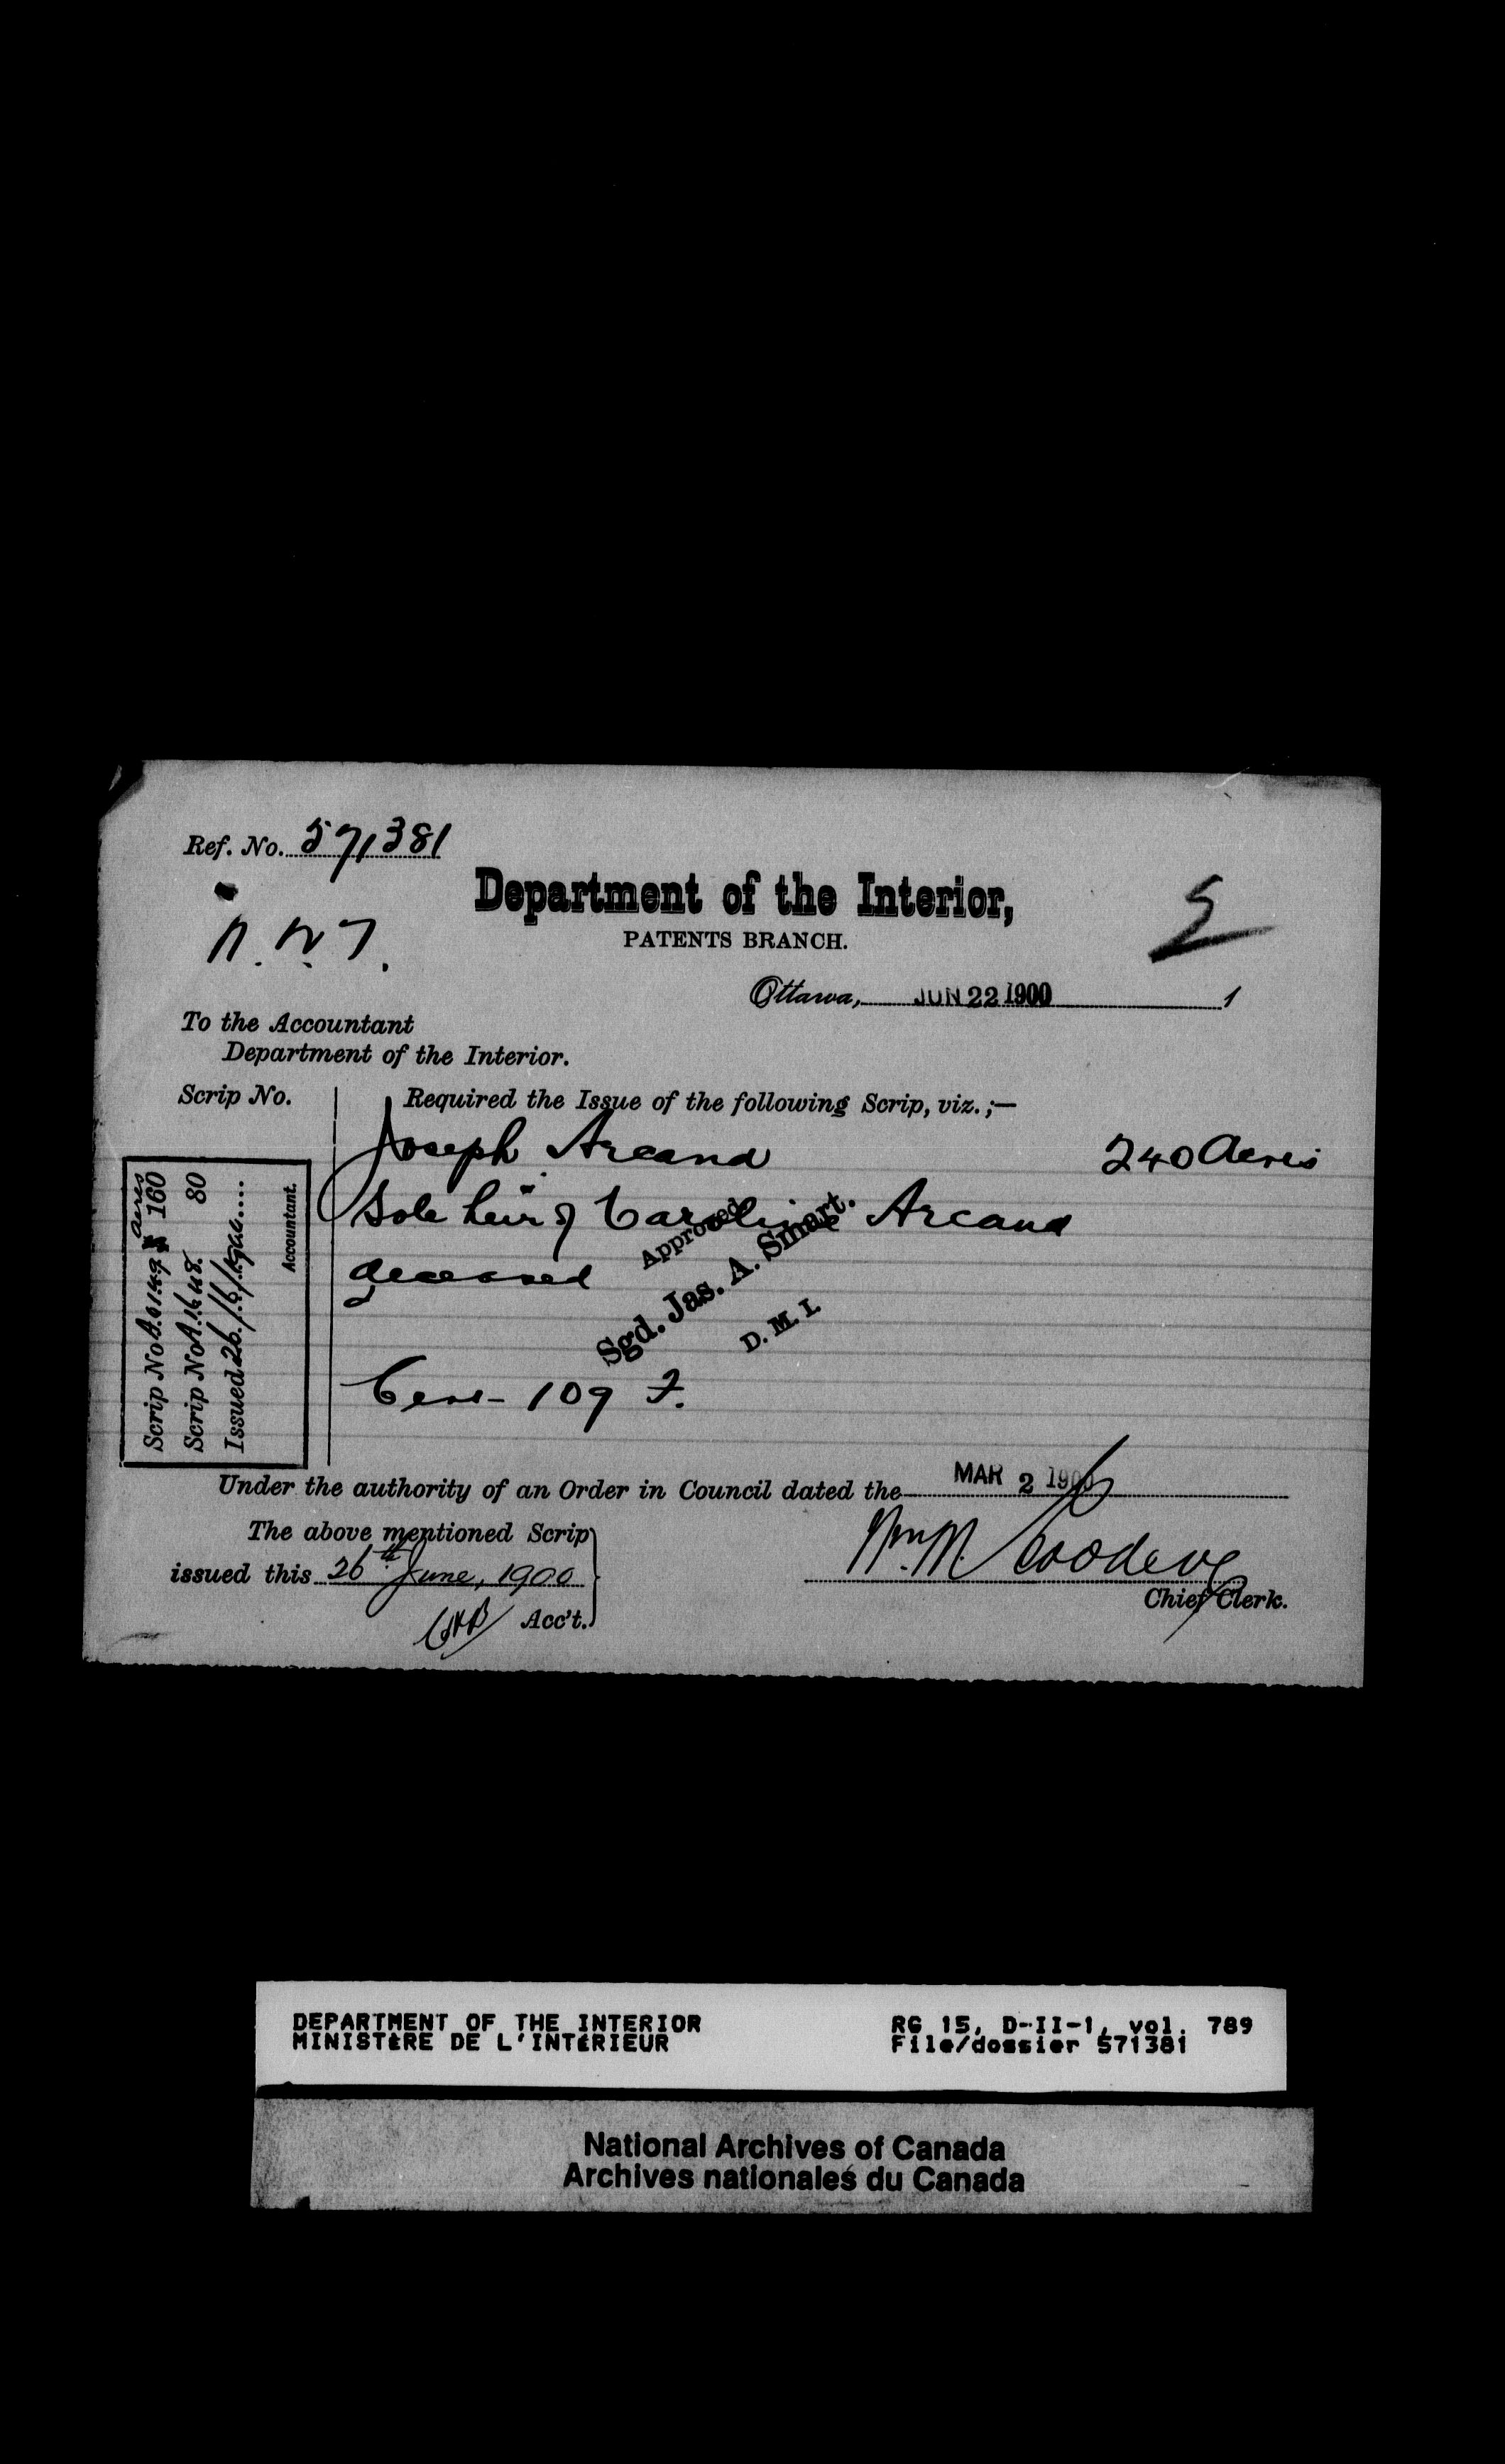 Ref. No. 571381
N.W.T.
Department of the Interior,
PATENTS BRANCH.
Ottawa, JUN 22 1900 1
To the Accountant
Department of the Interior.
Scrip No.
Required the Issue of the following Scrip, viz.;—
Joseph Arcand 240 Acres
Sole heir of Caroline Arcand
deceased
Approved
Sgd. Jas. A. Smart.
D. M. I.
109 F.
acres
Scrip No 160
Scrip No A.1648. 80
Issued 26/6/1900
Accountant.
Under the authority of an Order in Council dated the MAR 2 1900
The above mentioned Scrip
issued this 26th June, 1900
Acc't.
Wm. M. Goodeve
Chief Clerk.
DEPARTMENT OF THE INTERIOR
MINISTÈRE DE L'INTÉRIEUR
RG 15, D-II-1, vol. 789
File/dossier 571381
National Archives of Canada
Archives nationales du Canada